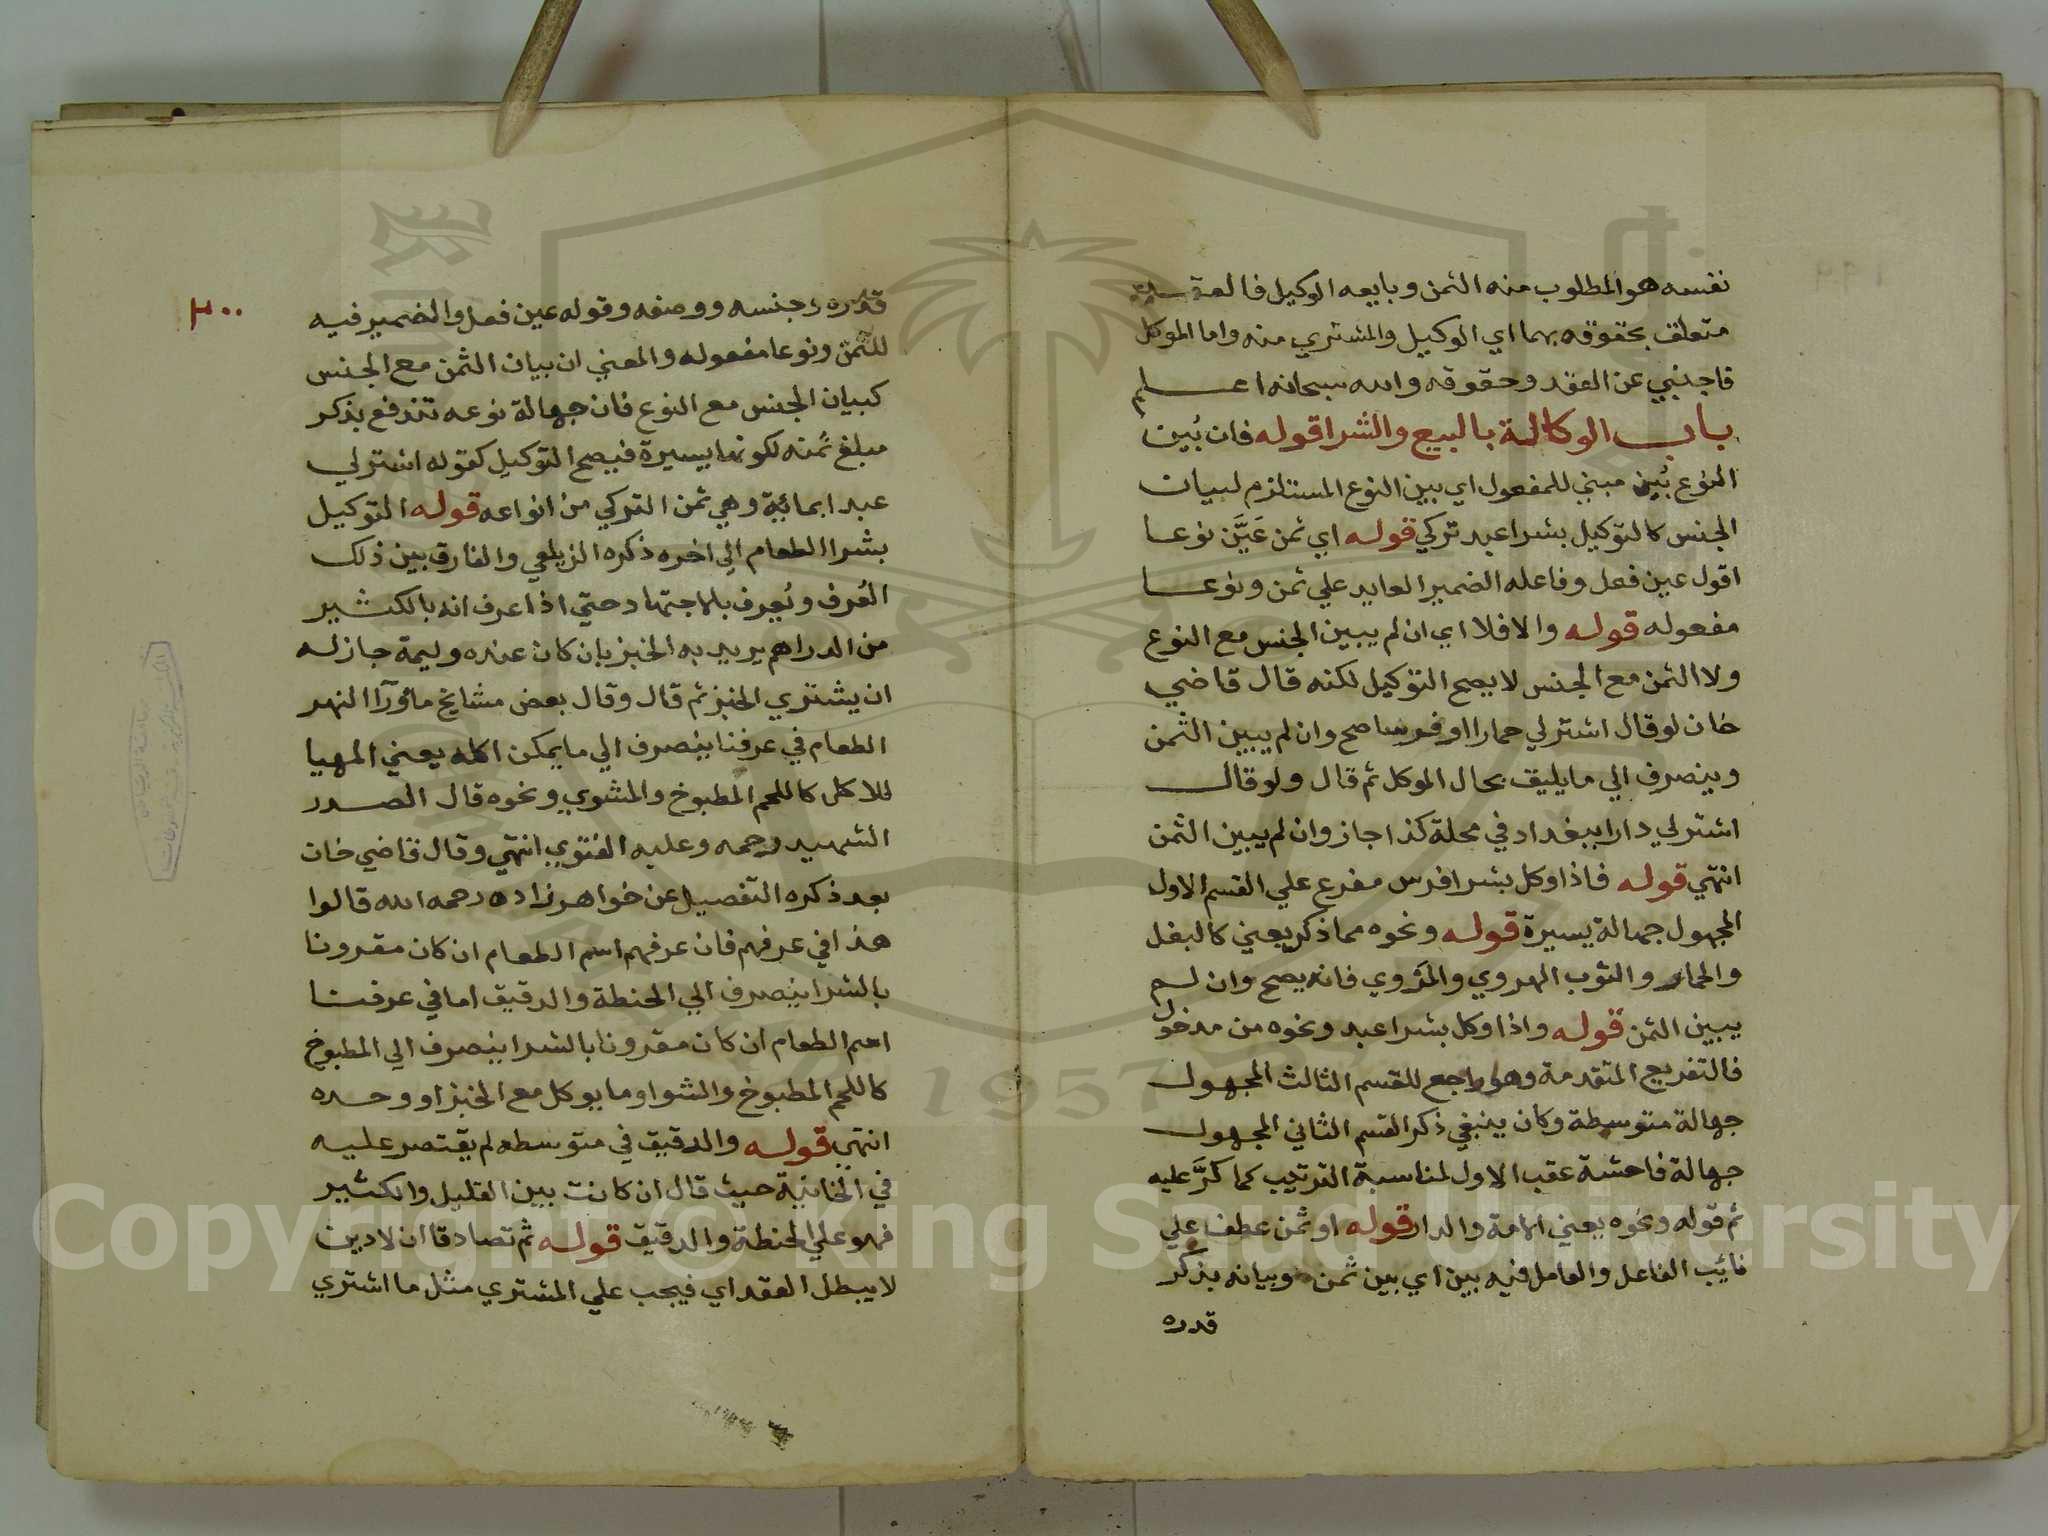 نفسه هو المطلوب منه الثمن وبايعه الوكيل فالعقد
متعلق بحقوقه بهما اي الوكيل والمشتري منه واما الموكل
فاجنبي عن العقد وحقوقه والله سبحانه اعلم
باب الوكالة بالبيع والشرا قوله فان بُين
النوع بُين مبني للمفعول اي بين النوع المستلزم لبيان
الجنس كالتوكيل بشرا عبد تركي قوله اي ثمن عَيَّن نوعا
اقول عين فعل وفاعله الضمير العايد علي ثمن ونوعا
مفعوله قوله والا فلا اي ان لم يبين الجنس مع النوع
ولا الثمن مع الجنس لا يصح التوكيل لكنه قال قاضي
خان لو قال اشتر لي حمارا او فرسا صح وان لم يبين الثمن
وينصرف الي ما يليق بحال الموكل ثم قال ولو قال
اشتر لي دارا ببغداد في محلة كذا جاز وان لم يبين الثمن
انتهي قوله فاذا وكل بشرا فرس مفرع علي القسم الاول
المجهول جهالة يسيرة قوله ونحوه مما ذكر يعني كالبغل
والحمار والثوب الهروي والمَرْوي فانه يصح وان لم
يبين الثمن قوله واذا وكل بشرا عبد ونحوه من مدخول
فا التفريع المتقدمة وهو راجع للقسم الثالث المجهول
جهالة متوسطة وكان ينبغي ذكر القسم الثاني المجهول
جهالة فاحشة عقب الاول لمناسبة الترتيب كما كرَّ عليه
ثم قوله ونحوه يعني الامة والدار قوله او ثمن عطف علي
نائب الفاعل والعامل فيه بين اي بين ثمن وبيانه بذكر
قدره
٢٠٠
قدره وجنسه ووصفه وقوله عين فعل والضمير فيه
للثمن ونوعا مفعوله والمعني ان بيان الثمن مع الجنس
كبيان الجنس مع النوع فان جهالة نوعه تندفع بذكر
مبلغ ثمنه لكونها يسيرة فيصح التوكيل كقوله اشتر لي
عبدا بمائية وهي ثمن التركي من انواعه قوله التوكيل
بشرا الطعام الي اخره ذكره الزيلعي والفارق بين ذلك
العُرف ويُعرف بالاجتهاد حتي اذا عرف انه بالكثير
من الدراهم يريد به الخبز بان كان عنده وليمة جاز له
ان يشتري الخبز ثم قال وقال بعض مشايخ ماورآ النهر
الطعام في عرفنا ينصرف الي ما يمكن اكله يعني المهيا
للاكل كاللحم المطبوخ والمشوي ونحوه قال الصدر
الشهيد رحمه وعليه الفتوي انتهي وقال قاضي خان
بعد ذكره التفصيل عن خواهر زاده رحمه الله قالوا
هذا في عرفهم فان عرفهم اسم الطعام ان كان مقرونا
بالشرا ينصرف الي الحنطة والدقيق اما في عرفنا
اسم الطعام ان كان مقرونا بالشرا ينصرف الي المطبوخ
كاللحم المطبوخ والشوا وما يوكل مع الخبز او وحده
انتهي قوله والدقيق في متوسطه لم يقتصر عليه
في الخانية حيث قال ان كانت بين القليل والكثير
فهو علي الحنطة والدقيق قوله ثم تصادقا ان لا دين
لا يبطل العقد اي فيجب علي المشتري مثل ما اشتري
1957
Copyright © King Saud University